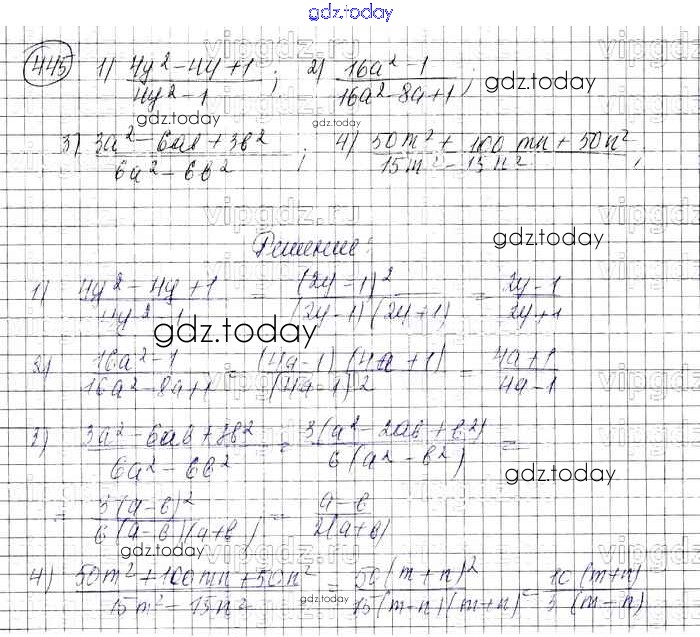 gdz.today
445 1) (4y² - 4y + 1)/(4y² - 1); 2) (16a² - 1)/(16a² - 8a + 1);
gdz.today
3) (3a² - 6ab + 3b²)/(6a² - 6b²); 4) (50m² + 100mn + 50n²)/(15m² - 15n²);
Решение:
gdz.today
1) (4y² - 4y + 1)/(4y² - 1) = (2y - 1)²/((2y - 1)(2y + 1)) = (2y - 1)/(2y + 1)
gdz.today
2) (16a² - 1)/(16a² - 8a + 1) = ((4a - 1)(4a + 1))/(4a - 1)² = (4a + 1)/(4a - 1)
3) (3a² - 6ab + 3b²)/(6a² - 6b²) = 3(a² - 2ab + b²)/6(a² - b²) =
gdz.today
= 3(a - b)²/(6(a - b)(a + b)) = (a - b)/2(a + b)
gdz.today
4) (50m² + 100mn + 50n²)/(15m² - 15n²) = 50(m + n)²/(15(m - n)(m + n)) = 10(m + n)/3(m - n)
gdz.today